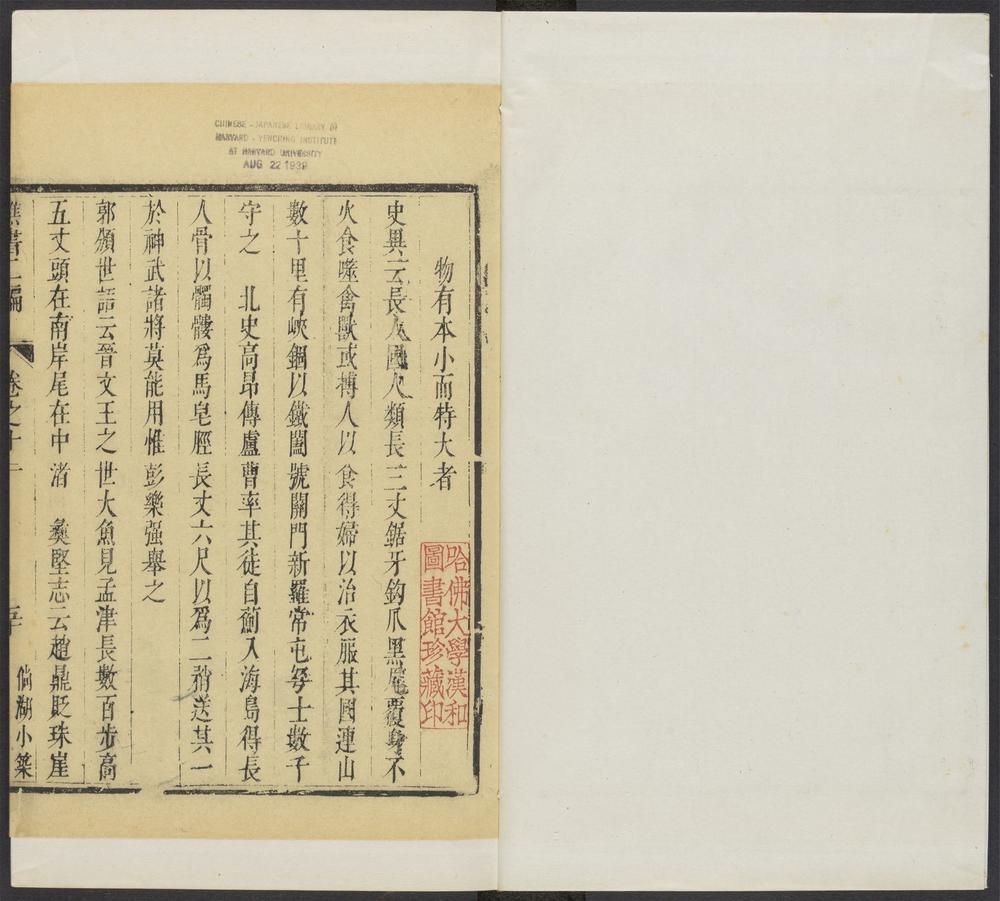 CHINESE - JAPANESE LIBRARY OF
HARVARD - YENCHING INSTITUTE
AT HARVARD UNIVERSITY
AUG 22 1939
物有本小而特大者
史異云長人國人類長三丈鋸牙鈎爪黑毛覆身不
火食噬禽獸或搏人以食得婦以治衣服其國連山
數十里有峽錮以鐵闔號關門新羅常屯弩士數千
守之 北史高昂傳盧曹率其徒自薊入海島得長
人骨以髑髏爲馬皂脛長丈六尺以爲二矟送其一
於神武諸將莫能用惟彭樂强舉之
郭頒世語云晉文王之世大魚見孟津長數百步高
五丈頭在南岸尾在中渚 夷堅志云趙鼎貶珠崖
樵書二編 卷之十 倘湖小築
哈佛大學漢和
圖書館珍藏印